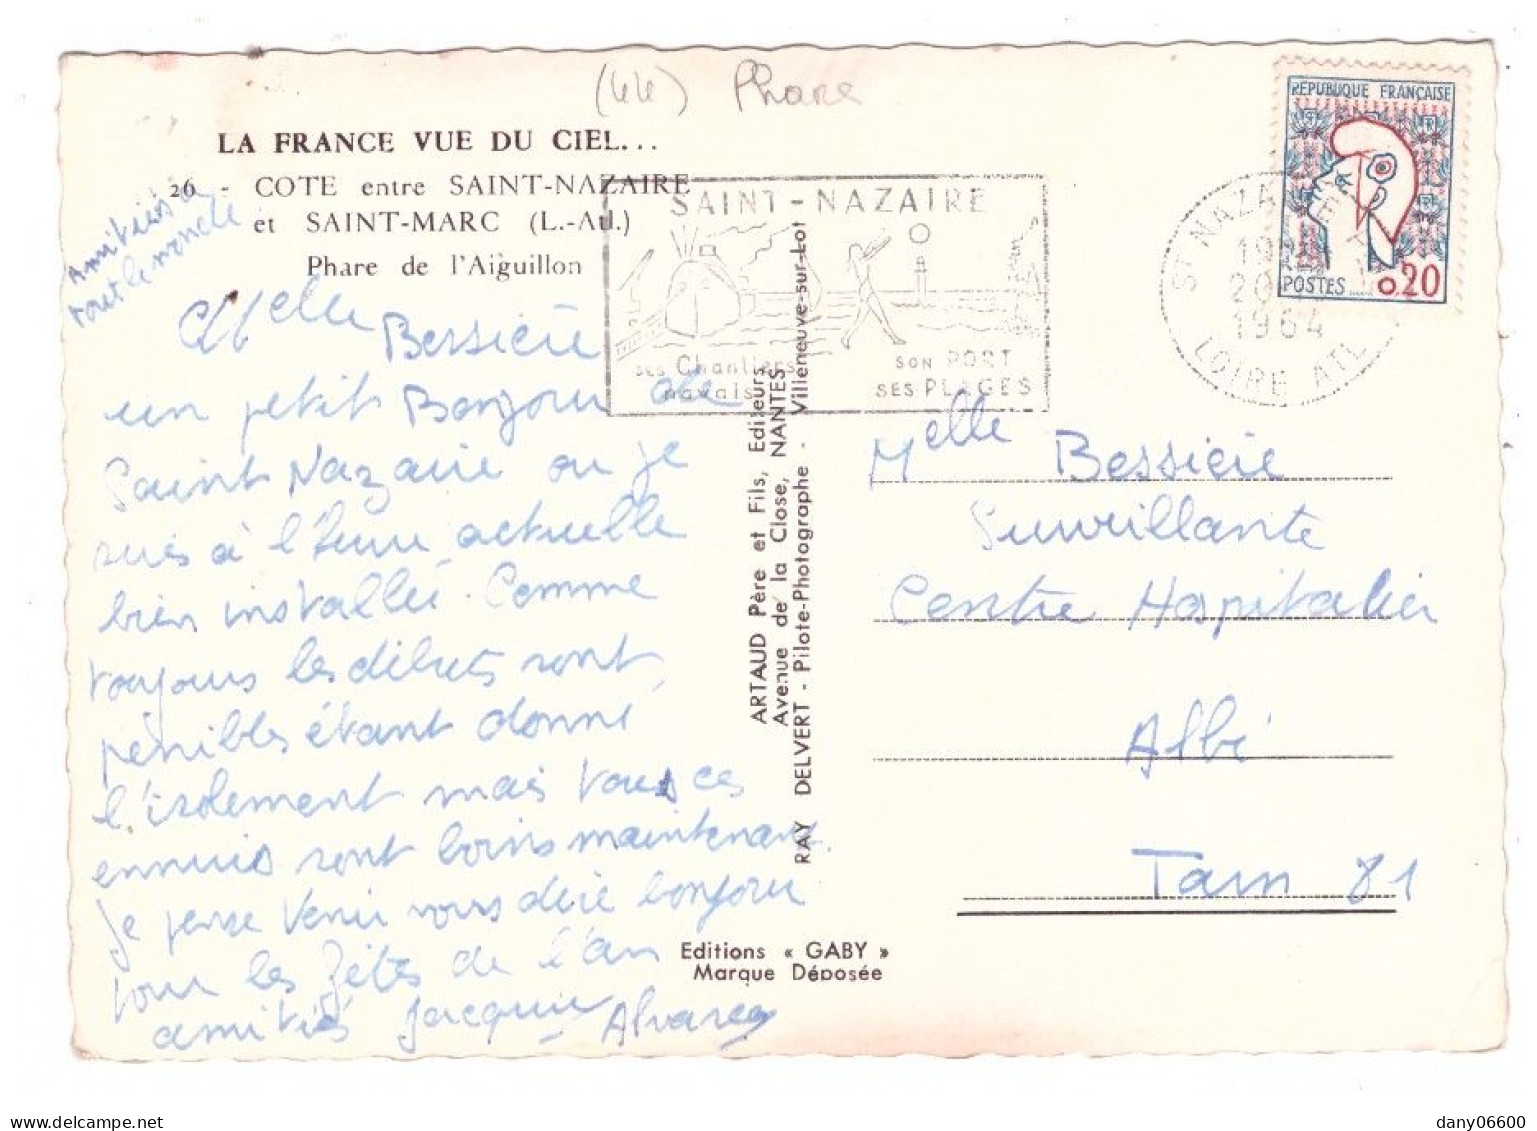 (44) Phare
LA FRANCE VUE DU CIEL...
26 - COTE entre SAINT-NAZAIRE
et SAINT-MARC (L.-Atl.)
Phare de l'Aiguillon
Amitiés à
tout le monde
Melle Bessière
un petit Bonjour de
Saint Nazaire ou je
suis à l'heure actuelle
bien installée. Comme
toujours les débuts sont
pénibles étant donné
l'isolement mais tous ces
ennuis sont loins maintenant.
Je pense venir vous dire bonjour
pour les fêtes de l'an
amitiés Jacquie Alvarez
SAINT-NAZAIRE
ses Chantiers
navals
SON PORT
SES PLAGES
ARTAUD Père et Fils, Editeurs
Avenue de la Close, NANTES
RAY DELVERT - Pilote-Photographe - Villeneuve-sur-Lot
Editions « GABY »
Marque Déposée
RÉPUBLIQUE FRANÇAISE
POSTES
0.20
ST NAZAIRE
20
1964
LOIRE ATL.
Melle Bessière
Surveillante
Centre Hospitalier
Albi
Tarn 81
dany06600